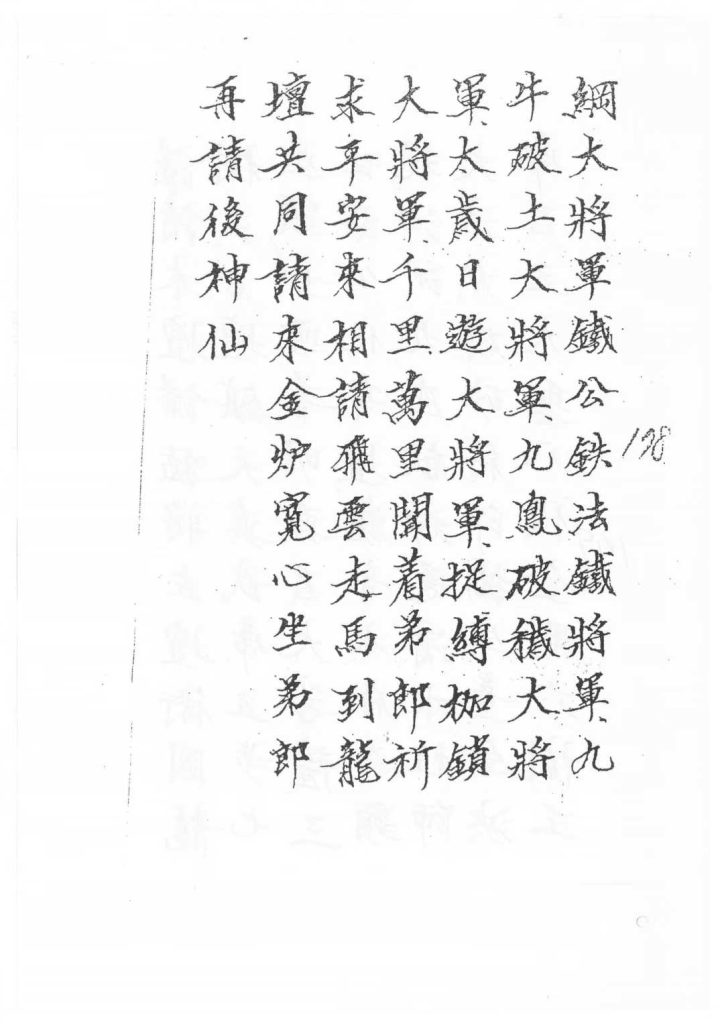 綱大將軍鐵公鉄法鐵將軍九
牛破土大將軍九鳳破穢大將
軍太歲日遊大將軍捉縛枷鎖
大將軍千里萬里聞着弟郎祈
求平安來相請飛雲走馬到龍
壇共同請來金炉寬心坐弟郎
再請後神仙
198